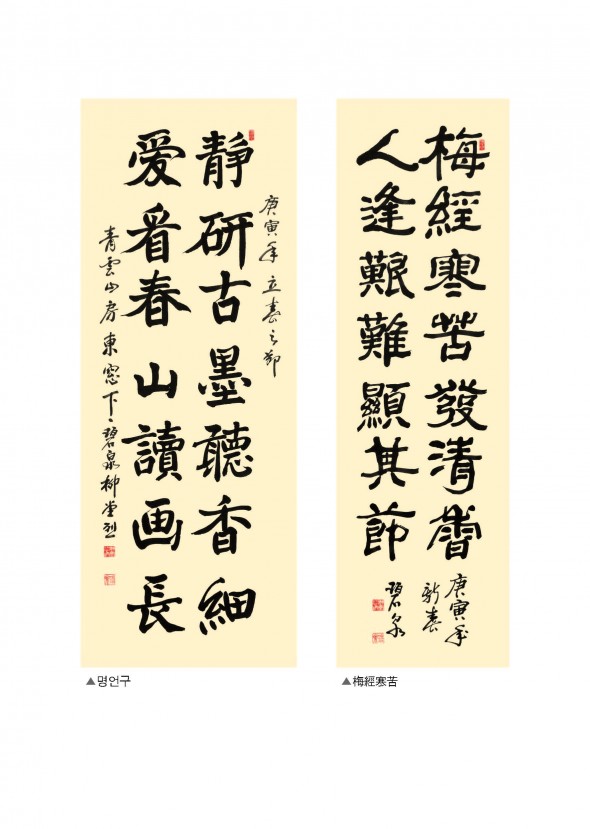 庚寅年 立春之節
靜研古墨聽香細
爱看春山讀画長
青雲山房東窓下、碧泉柳堂烈
▲명언구
梅經寒苦發清香
人逢艱難顯其節
庚寅年
新春
碧泉
▲梅經寒苦